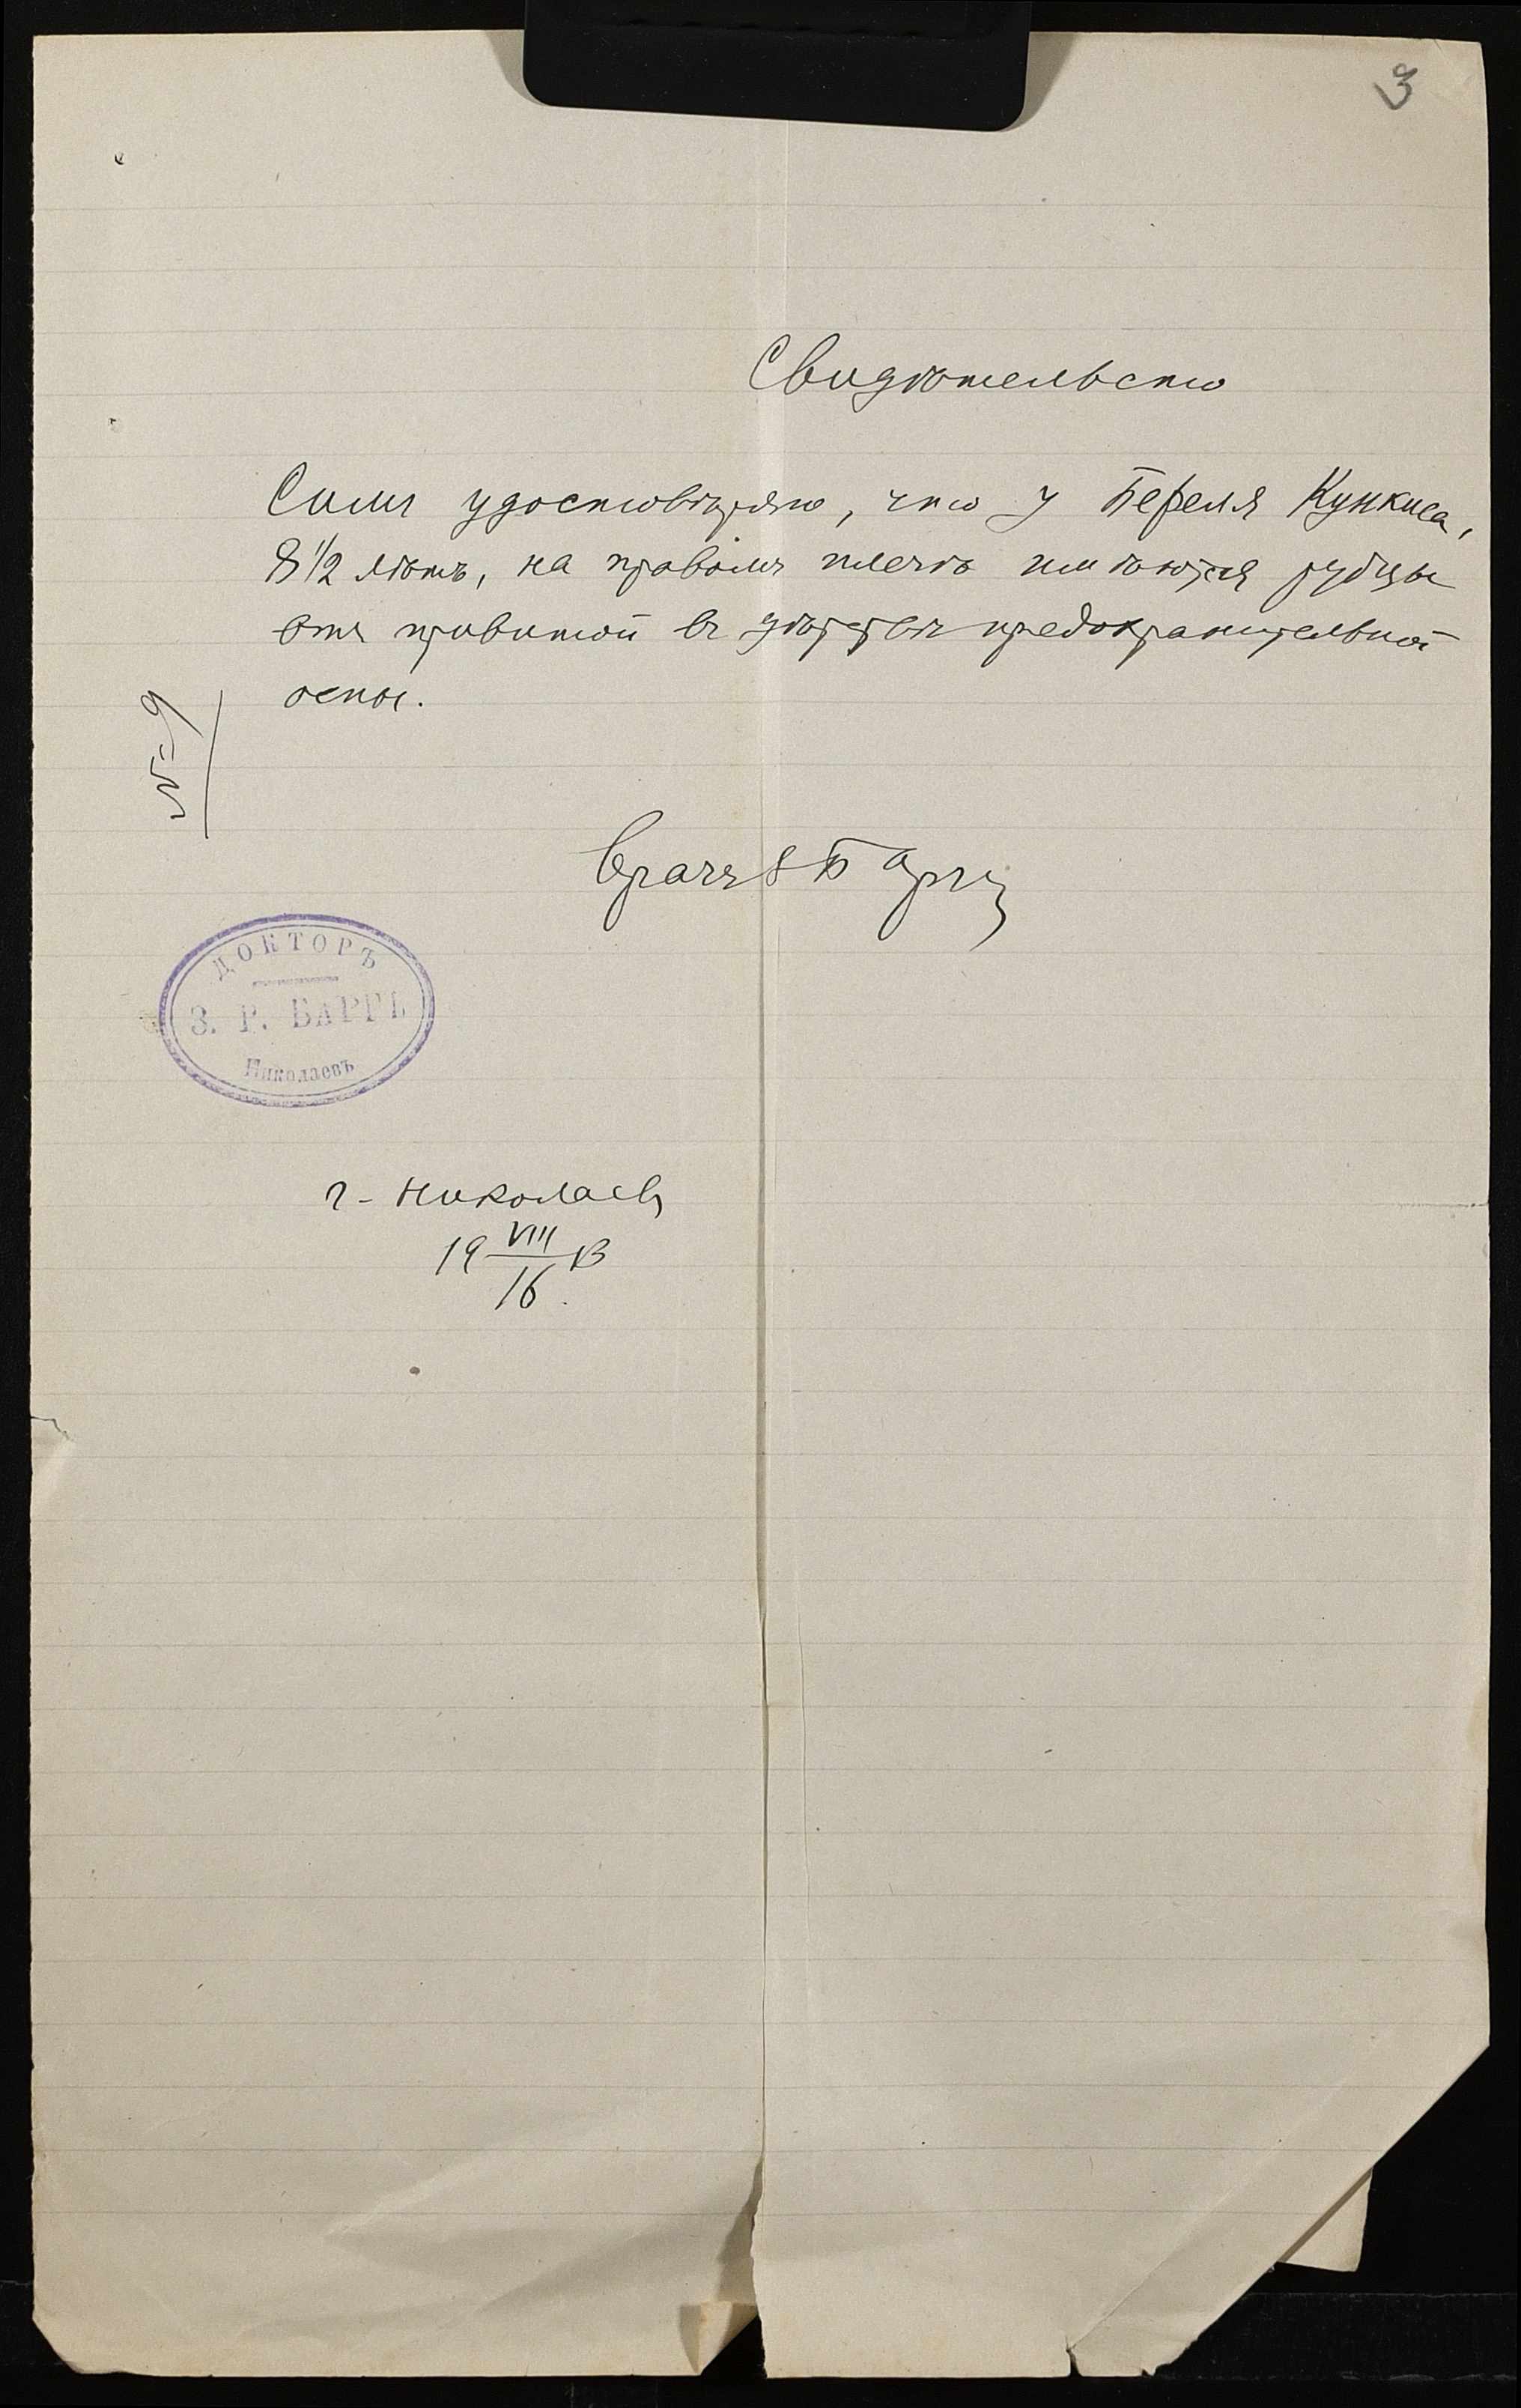 3
Свидѣтельство
Симъ удостовѣряю, что у Береля Кункиса,
8 1/2 лѣтъ, на правомъ плечѣ имѣются рубцы
отъ привитой въ дѣтствѣ предохранительной
оспы.
№ 9
Врачъ З Барръ
ДОКТОРЪ
З. Р. БАРРЪ
Николаевъ
г. Николаевъ
19 VIII/16 13